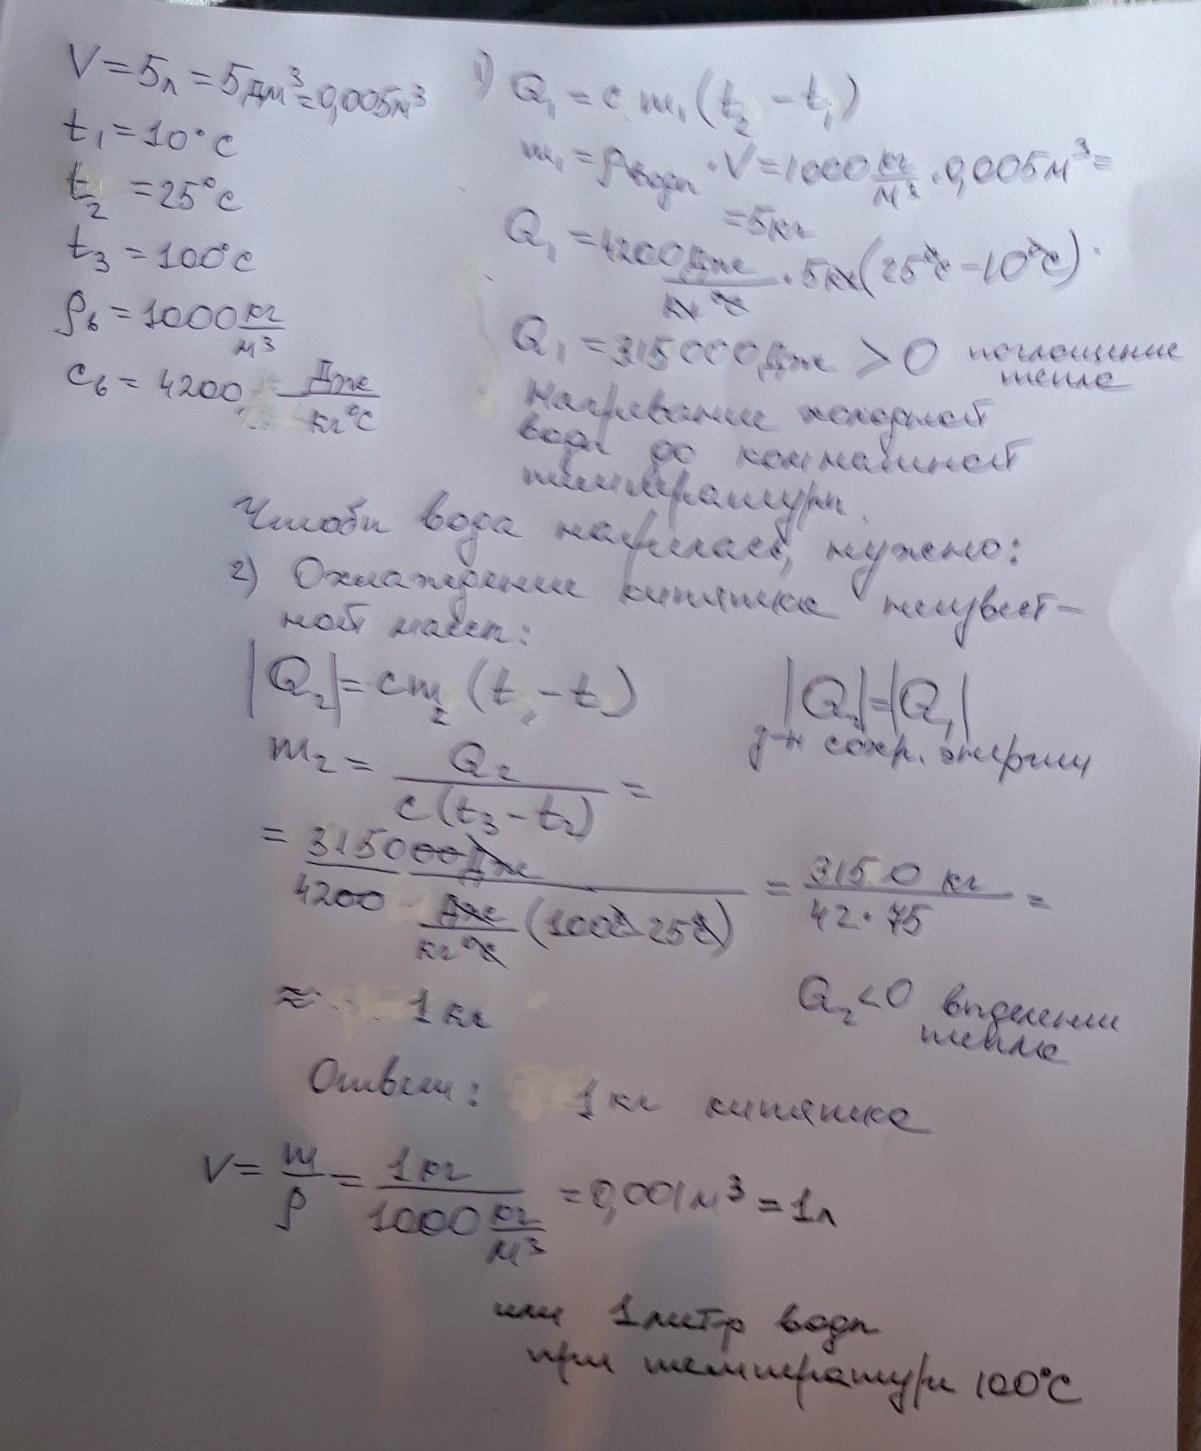 V = 5л = 5дм³ = 0,005м³
t₁ = 10°C
t₂ = 25°C
t₃ = 100°C
ρв = 1000 кг/м³
cв = 4200 Дж/кг°C
1) Q₁ = c m₁ (t₂ - t₁)
m₁ = ρводы · V = 1000 кг/м³ · 0,005м³ =
= 5кг
Q₁ = 4200 Дж/кг°C · 5кг (25°C - 10°C)
Q₁ = 315000 Дж > 0 поглощение
тепла
Нагревание холодной
воды до комнатной
температуры.
Чтобы вода нагрелась, нужно:
2) Охлаждение кипятка неизвест-
ной массы:
|Q₂| = cm₂ (t₃ - t₂) |Q₂| = |Q₁|
з-н сохр. энергии
m₂ = Q₂ / c(t₃ - t₂) =
= 315000 Дж / 4200 Дж/кг°C (100°C - 25°C) = 3150 кг / 42 · 75 =
≈ 1 кг
Q₂ < 0 выделение
тепла
Ответ: 1 кг кипятка
V = m/ρ = 1кг / 1000 кг/м³ = 0,001м³ = 1л
или 1 литр воды
при температуре 100°C